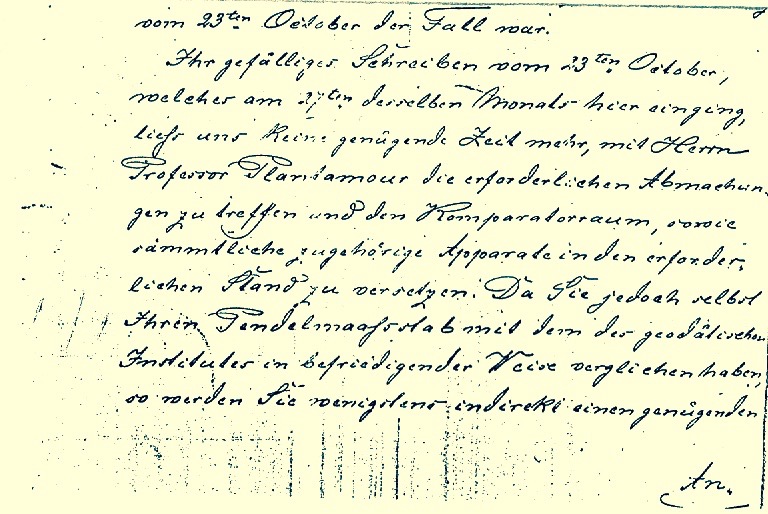 vom 23ten October der Fall war.
Ihr gefälliges Schreiben vom 23ten October,
welches am 27ten desselben Monats hier einging,
liess uns keine genügende Zeit mehr, mit Herrn
Professor Plantamour die erforderlichen Abmachun-
gen zu treffen und den Komparatorraum, sowie
sämmtliche zugehörige Apparate in den erforder-
lichen Stand zu versetzen. Da Sie jedoch selbst
Ihren Pendelmaassstab mit dem des geodätischen
Institutes in befriedigender Weise verglichen haben,
so werden Sie wenigstens indirekt einen genügenden
An-